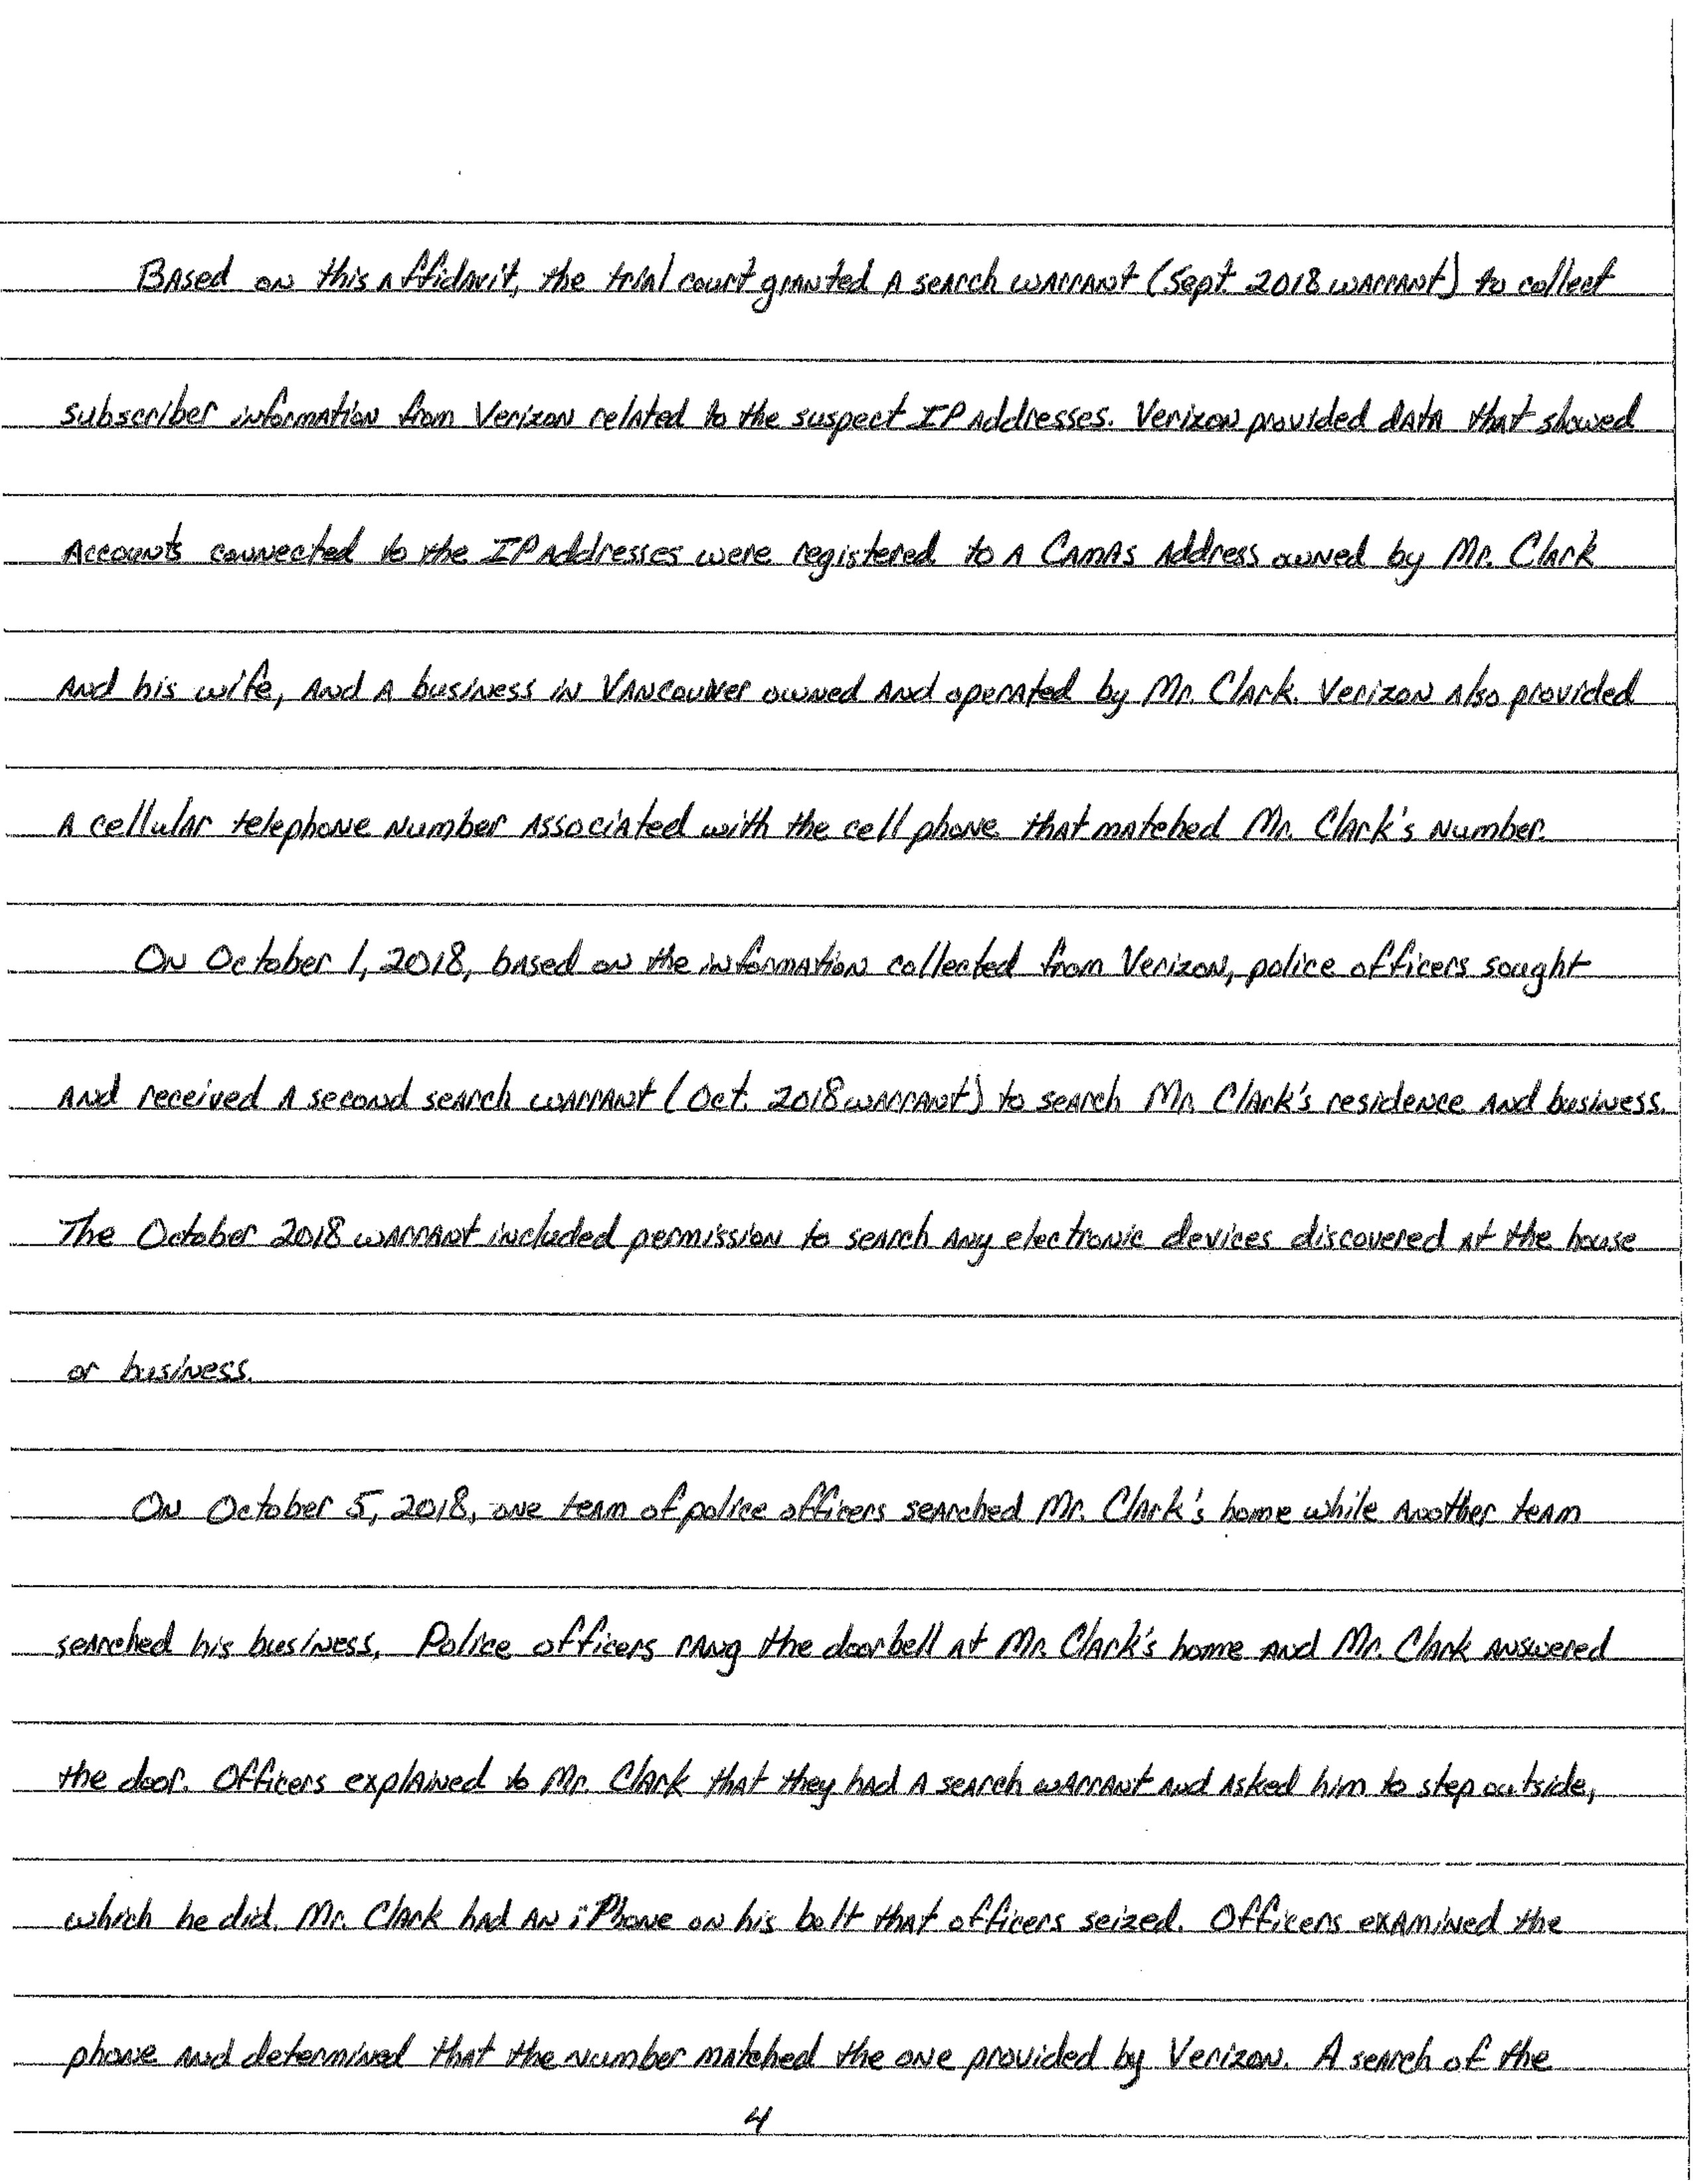 Based on this affidavit, the trial court granted a search warrant (Sept. 2018 warrant) to collect
subscriber information from Verizon related to the suspect IP addresses. Verizon provided data that showed
accounts connected to the IP addresses were registered to a Camas address owned by Mr. Clark
and his wife, and a business in Vancouver owned and operated by Mr. Clark. Verizon also provided
a cellular telephone number associated with the cell phone that matched Mr. Clark's number.
On October 1, 2018, based on the information collected from Verizon, police officers sought
and received a second search warrant (Oct. 2018 warrant) to search Mr. Clark's residence and business.
The October 2018 warrant included permission to search any electronic devices discovered at the house
or business.
On October 5, 2018, one team of police officers searched Mr. Clark's home while another team
searched his business. Police officers rang the doorbell at Mr. Clark's home and Mr. Clark answered
the door. Officers explained to Mr. Clark that they had a search warrant and asked him to step outside,
which he did. Mr. Clark had an iPhone on his belt that officers seized. Officers examined the
phone and determined that the number matched the one provided by Verizon. A search of the
4